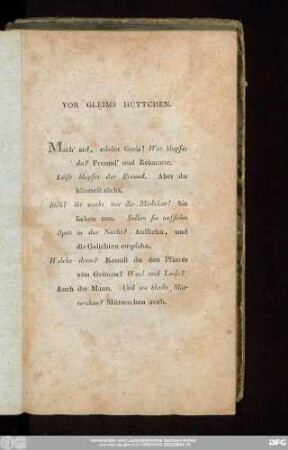 VOR GLEIMS HÜTTCHEN.
Mach' auf, edeler Greis! Wer klopfet
da? Freund' und Bekannte.
Leise klopfet der Freund. Aber du
hörtest nicht.
Still! ihr weckt mir die Mädchen! Sie
lieben uns. Sollen sie aufstehn
Spät in der Nacht? Aufstehn, und
die Geliebten empfahn.
Welche denn? Kennst du den Pfarrer
von Grünau? Was! und Luise?
Auch ihr Mann. Und wo bleibt Müt-
terchen? Mütterchen auch.
Universitäts- und Landesbibliothek Sachsen-Anhalt
DFG